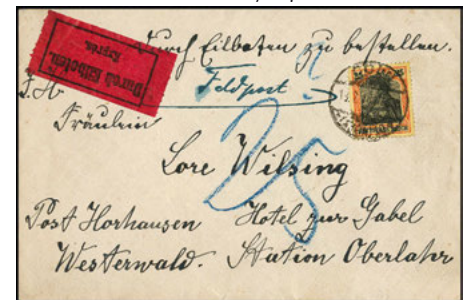 Durch Eilboten zu bestellen.
Durch Eilboten.
Exprès.
Feldpost
I.H
Fräulein
25
Lore Wilsing
Post Horhausen Hotel zur Gabel
Westerwald. Station Oberlahr